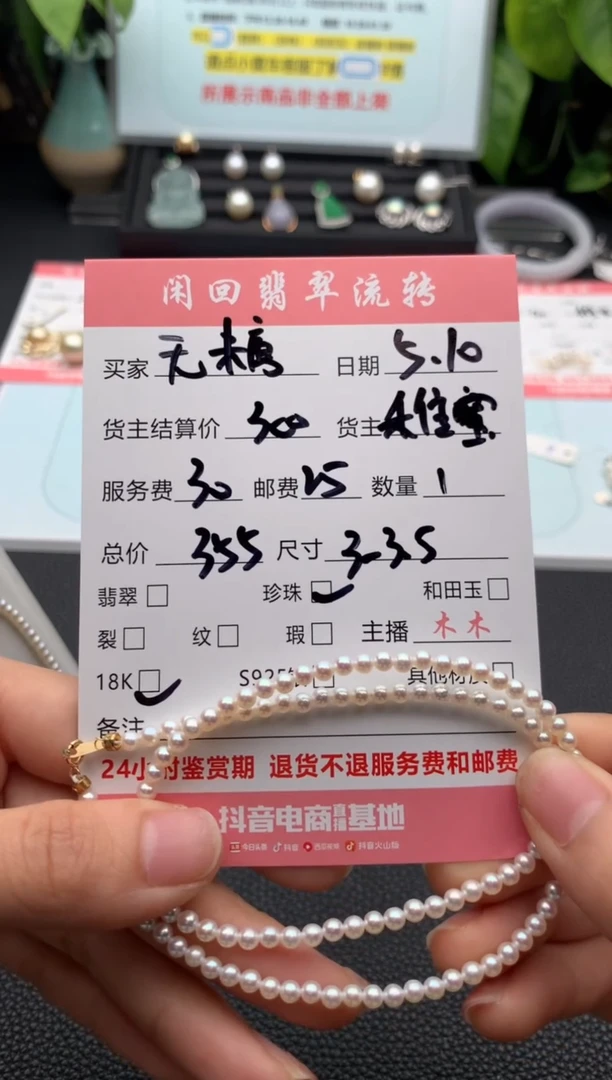 并展示商品非全部上架
闲回翡翠流转
买家 无糖 日期 5.10
货主结算价 300 货主
服务费 30 邮费 25 数量 1
总价 355 尺寸 3-3.5
翡翠 珍珠 和田玉
裂 纹 瑕 主播 木木
18K S925银 其他材质
备注
24小时鉴赏期 退货不退服务费和邮费
抖音电商直播基地
今日头条 抖音 西瓜视频 抖音火山版